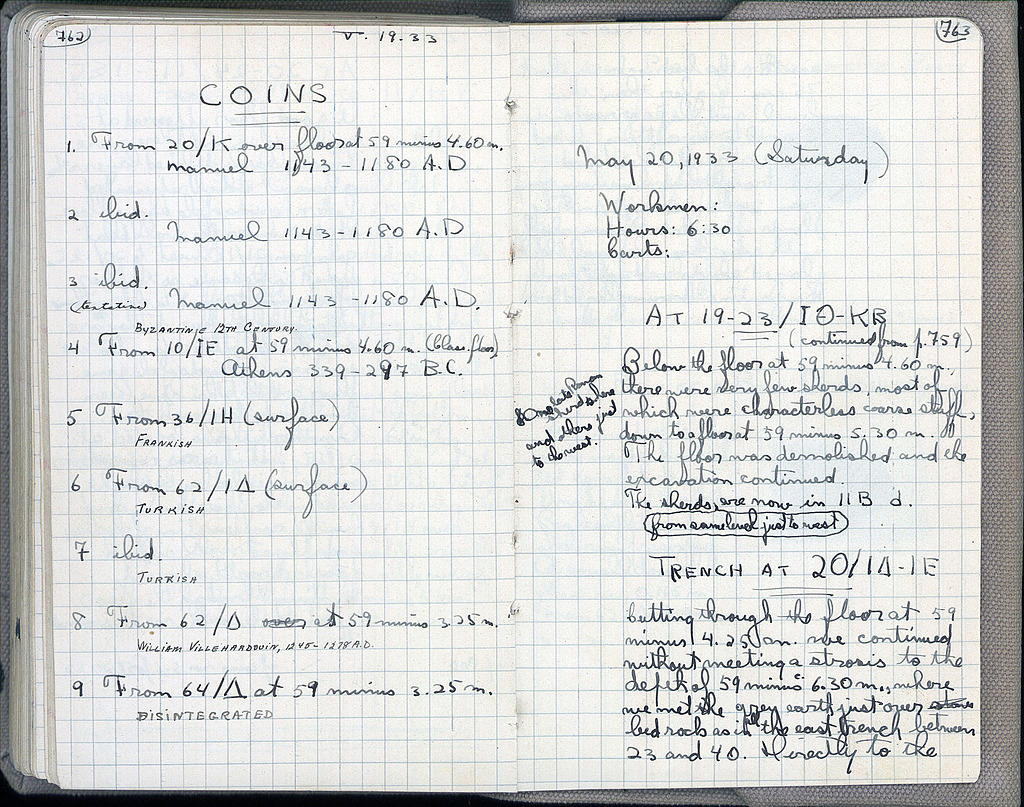 762
V. 19. 33
COINS
1. From 20/K over floor at 59 minus 4.60 m.
Manuel 1143-1180 A.D
2 ibid.
Manuel 1143-1180 A.D
3 ibid.
(tentative) Manuel 1143-1180 A.D.
BYZANTINE 12TH CENTURY.
4 From 10/IE at 59 minus 4.60 m. (Class. floor)
Athens 339-297 B.C.
5 From 36/IH (surface)
FRANKISH
6 From 62/IΔ (surface)
TURKISH
7 ibid.
TURKISH
8 From 62/Δ over at 59 minus 3.25 m.
WILLIAM VILLEHARDOUIN, 1245-1278 A.D.
9 From 64/Δ at 59 minus 3.25 m.
DISINTEGRATED
763
May 20, 1933 (Saturday)
Workmen:
Hours: 6:30
Carts:
AT 19-23/IΘ-KB
(continued from p. 759)
Below the floor at 59 minus 4.60 m.,
there were very few sherds, most of
which were characterless coarse stuff,
down to a floor at 59 minus 5.30 m.
The floor was demolished and the
excavation continued.
The sherds, are now in 11 B d.
from same level just to west
Some late Roman
sherds here
and there just
to the west.
TRENCH AT 20/IΔ-IE
Cutting through the floor at 59
minus 4.25 m. we continued
without meeting a strosis to the
depth of 59 minus 6.30 m., where
we met the grey earth just over stones
bedrock as in the east trench between
23 and 40. Directly to the